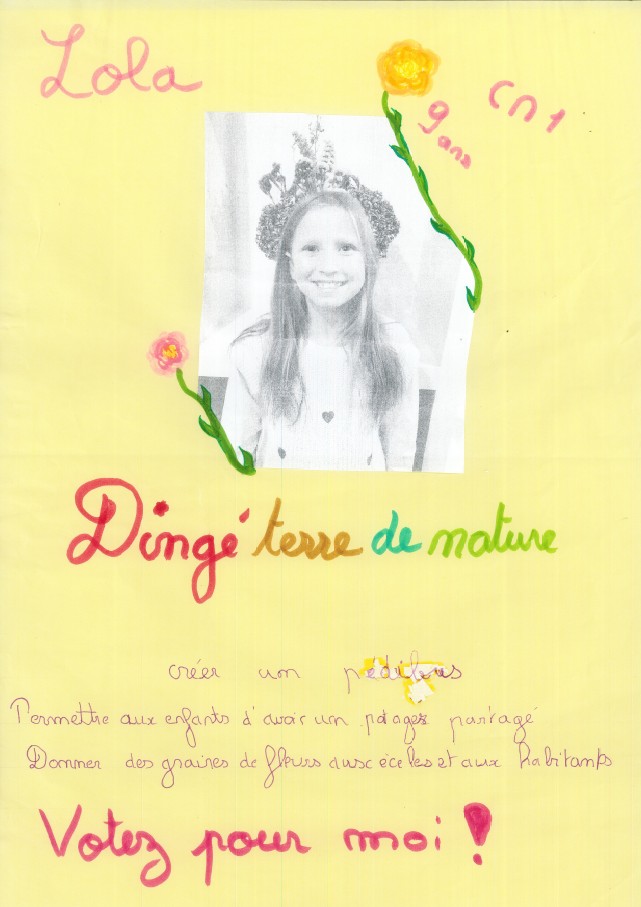 Lola
9 ans
CM1
Dingé terre de nature
créer un pédibus
Permettre aux enfants d'avoir un potagez partagé
Donner des graines de fleurs aux écoles et aux habitants
Votez pour moi !